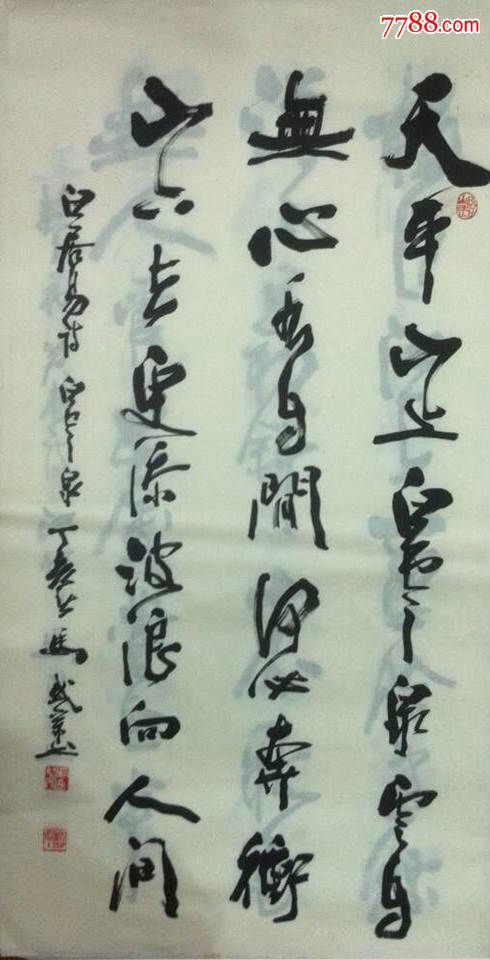 7788.com
天平山上白雲泉雲自
無心水自閒何必奔衝
山下去更添波浪向人间
白居易诗白雲泉丁亥